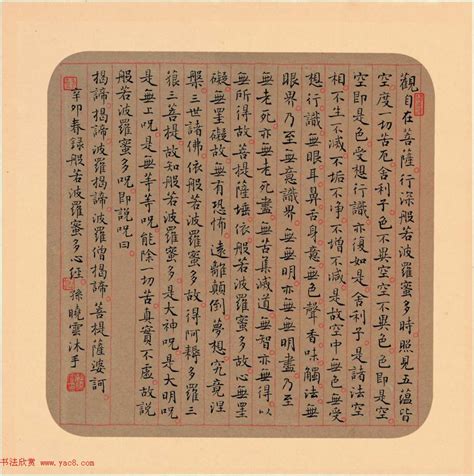 觀自在菩薩行深般若波羅蜜多時照見五蘊皆
空度一切苦厄舍利子色不異空空不異色色即是空
空即是色受想行識亦復如是舍利子是諸法空
相不生不滅不垢不淨不增不減是故空中無色無受
想行識無眼耳鼻舌身意無色聲香味觸法無
眼界乃至無意識界無無明亦無無明盡乃至
無老死亦無老死盡無苦集滅道無智亦無得以
無所得故菩提薩埵依般若波羅蜜多故心無罣
礙無罣礙故無有恐怖遠離顛倒夢想究竟涅
槃三世諸佛依般若波羅蜜多故得阿耨多羅三
藐三菩提故知般若波羅蜜多是大神咒是大明咒
是無上咒是無等等咒能除一切苦真實不虛故說
般若波羅蜜多咒即說咒曰
揭諦揭諦波羅揭諦波羅僧揭諦菩提薩婆訶
辛卯春錄般若波羅蜜多心經 孫曉雲沐手
书法欣赏 www.yac8.com